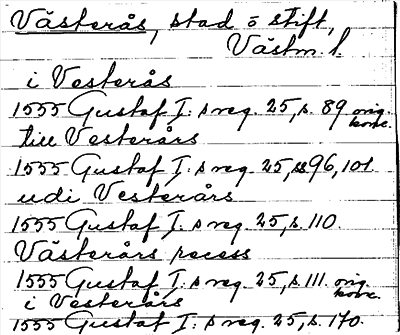 Västerås, stad o stift,
Västm. l.
i Vesterås
1555 Gustaf I:s reg. 25, s. 89 orig.
konc.
till Vesterårs
1555 Gustaf I:s reg. 25, ss 96, 101
udi Vesterårs
1555 Gustaf I:s reg. 25, s. 110.
Västerårs recess
1555 Gustaf I:s reg. 25, s. 111. orig.
konc.
i Vesterårs
1555 Gustaf I:s reg. 25, s. 170.